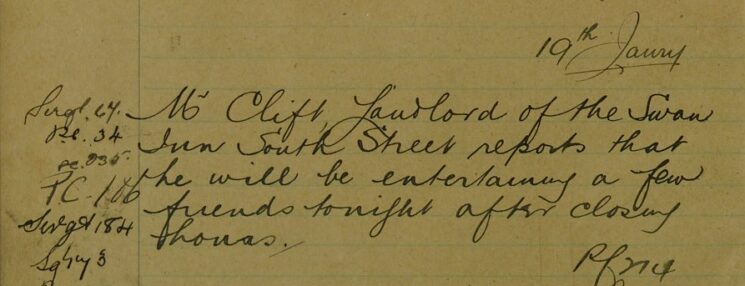 19th Janry
Mr Clift, Landlord of the Swan
Inn South Street reports that
he will be entertaining a few
friends tonight after closing
houas.
Sergt. 64.
P.C. 34
P.C. 106
Sergt 184